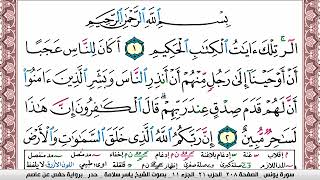 بِسْمِ ٱللَّهِ ٱلرَّحْمَٰنِ ٱلرَّحِيمِ
الٓر تِلْكَ ءَايَٰتُ ٱلْكِتَٰبِ ٱلْحَكِيمِ ١ أَكَانَ لِلنَّاسِ عَجَبًا
أَنْ أَوْحَيْنَآ إِلَىٰ رَجُلٍ مِّنْهُمْ أَنْ أَنذِرِ ٱلنَّاسَ وَبَشِّرِ ٱلَّذِينَ ءَامَنُوٓا۟
أَنَّ لَهُمْ قَدَمَ صِدْقٍ عِندَ رَبِّهِمْ قَالَ ٱلْكَٰفِرُونَ إِنَّ هَٰذَا
لَسَٰحِرٌ مُّبِينٌ ٢ إِنَّ رَبَّكُمُ ٱللَّهُ ٱلَّذِى خَلَقَ ٱلسَّمَٰوَٰتِ وَٱلْأَرْضَ
سورة يونس الصفحة ٢٠٨ الحزب ٢١ الجزء ١١ بصوت الشيخ ياسر سلامة حدر برواية حفص عن عاصم